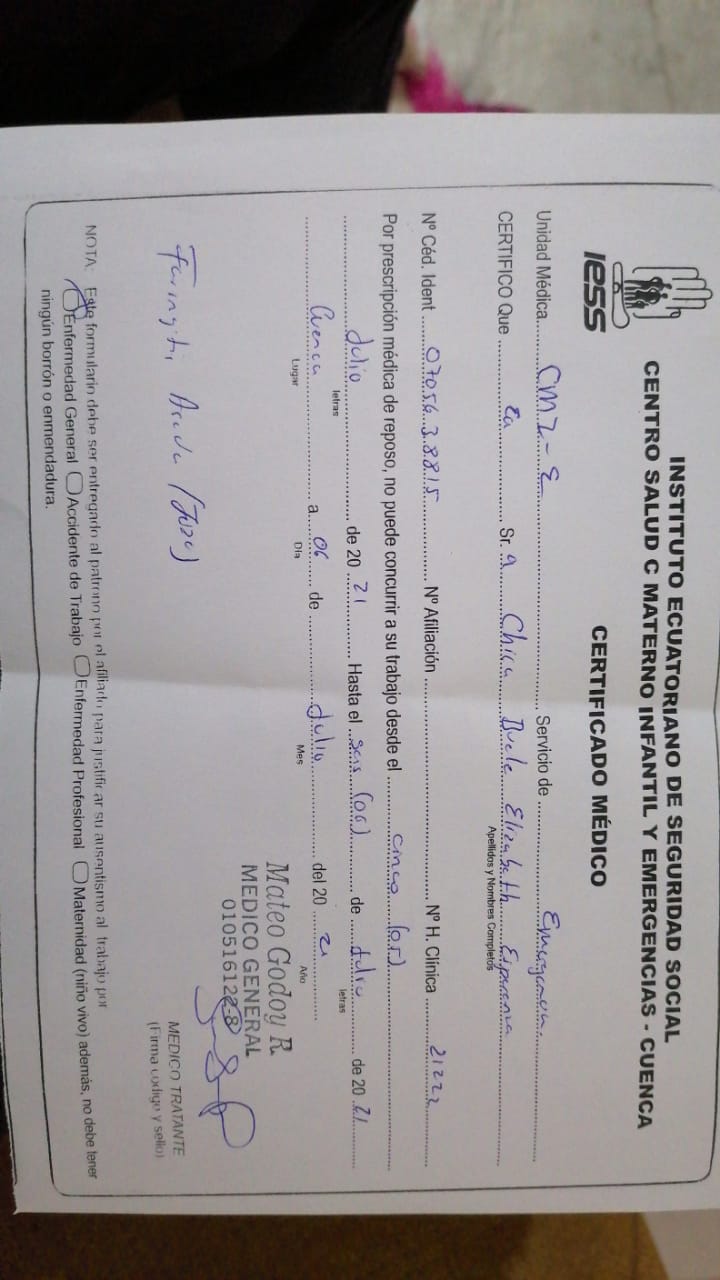 iess
INSTITUTO ECUATORIANO DE SEGURIDAD SOCIAL
CENTRO SALUD C MATERNO INFANTIL Y EMERGENCIAS - CUENCA
CERTIFICADO MÉDICO
Unidad Médica CMI-E Servicio de Emergencia.
CERTIFICO Que La Sr. a Chica Duele Elizabeth Esperanza
Apellidos y Nombres Completos
Nº Céd. Ident 0705638815 Nº Afiliación Nº H. Clínica 21222
Por prescripción médica de reposo, no puede concurrir a su trabajo desde el cinco (05)
Julio de 2021 Hasta el seis (06) de Julio de 2021
letras letras
Cuenca a 06 de Julio del 2021
Lugar Día Mes Año
Mateo Godoy R.
MEDICO GENERAL
0105161228-8
Faringitis Aguda (J020)
MEDICO TRATANTE
(Firma código y sello)
NOTA: Este formulario debe ser entregado al patrono por el afiliado para justificar su ausentismo al trabajo por
Enfermedad General Accidente de Trabajo Enfermedad Profesional Maternidad (niño vivo) además, no debe tener
ningún borrón o enmendadura.